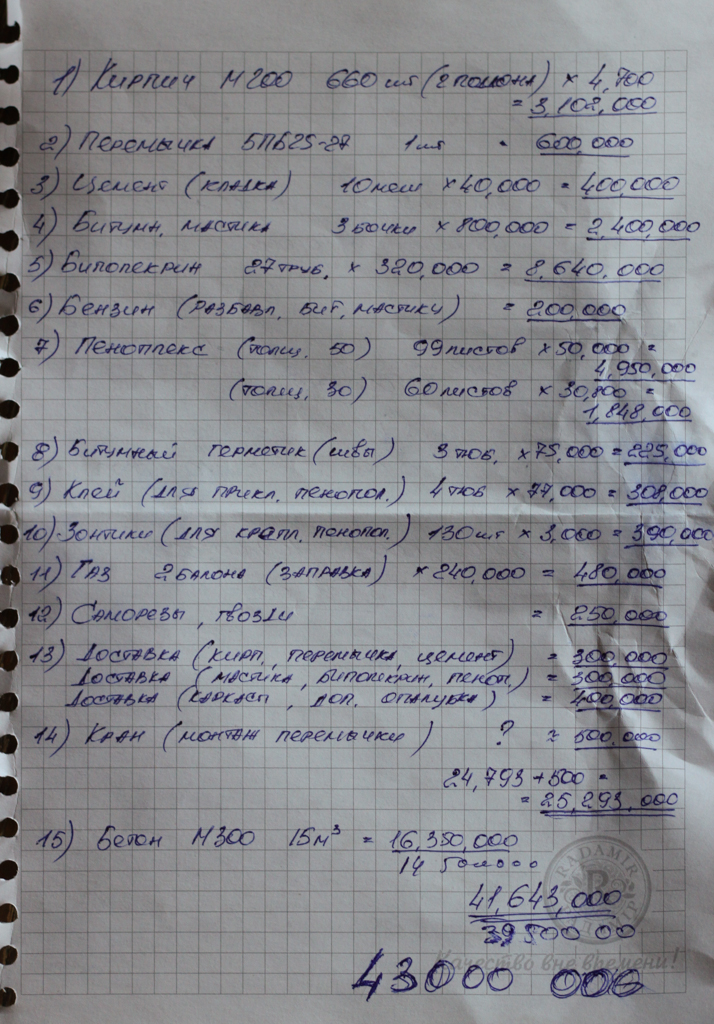 1) Кирпич М200 660 шт (2 подона) × 4,700
= 3,102,000
2) Перемычка БПБ25-27 1 шт - 600,000
3) Цемент (кладка) 10 меш × 40,000 = 400,000
4) Битумн. мастика 3 бочки × 800,000 = 2,400,000
5) Биполекрин 27 труб. × 320,000 = 8,640,000
6) Бензин (разбавл. бит. мастики) = 200,000
7) Пеноплекс (толщ. 50) 99 листов × 50,000 =
4,950,000
(толщ. 30) 60 листов × 30,800 =
1,848,000
8) Битумный герметик (швы) 3 тюб. × 75,000 = 225,000
9) Клей (для прикл. пенопол.) 4 тюб × 77,000 = 308,000
10) Зонтики (для крепл. пенопол.) 130 шт × 3,000 = 390,000
11) Газ 2 балона (заправка) × 240,000 = 480,000
12) Саморезы, гвозди = 250,000
13) Доставка (кирп., перемычка, цемент) = 300,000
Доставка (мастика, биполекрин, пеноп.) = 300,000
Доставка (каркасы, доп. опалубка) = 400,000
14) Кран (монтаж перемычки) ? ≈ 500,000
24,793 + 500 =
= 25,293,000
15) Бетон М300 15 м³ = 16,350,000
14
41,643,000
RADAMIR
Качество вне времени!
43000 000